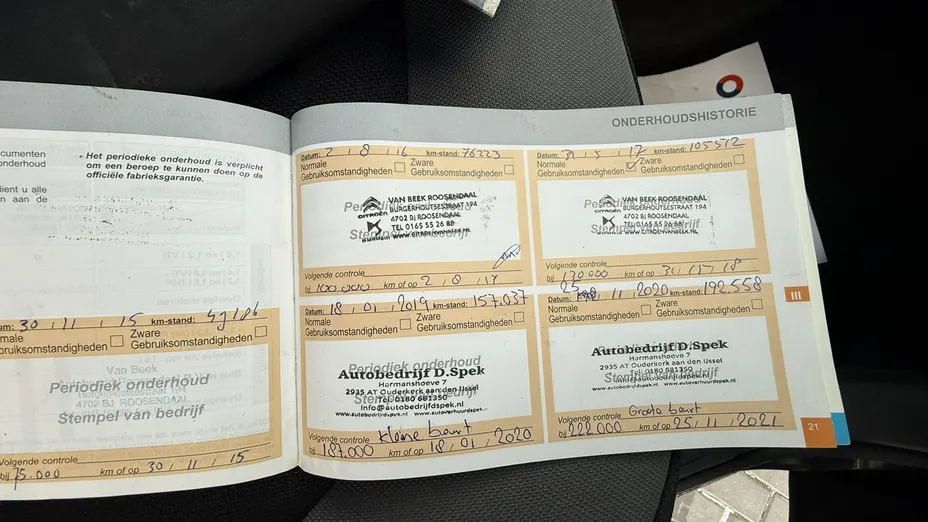 ONDERHOUDSHISTORIE
cumenten
onderhoud
dient u alle
en aan de
• Het periodieke onderhoud is verplicht
om een beroep te kunnen doen op de
officiële fabrieksgarantie.
um: 30 / 11 / 15 km-stand:
Normale
Gebruiksomstandigheden
Zware
Gebruiksomstandigheden
Van Beek
Periodiek onderhoud
4702 BJ ROOSENDAAL
Stempel van bedrijf
Volgende controle
bij 75.000 km of op 30 / 11 / 15
Datum: 2 / 8 / 16 km-stand: 76223
Normale
Gebruiksomstandigheden
Zware
Gebruiksomstandigheden
Periodiek onderhoud
VAN BEEK ROOSENDAAL
BURGERHOUTSESTRAAT 194
4702 BJ ROOSENDAAL
TEL 0165 55 26 88
WWW.CITROENVANBEEK.NL
CITROËN
Stempel van bedrijf
Volgende controle
bij 100.000 km of op 2 / 8 / 17
Datum: 31 / 5 / 17 km-stand: 105512
Normale
Gebruiksomstandigheden
Zware
Gebruiksomstandigheden
Periodiek onderhoud
VAN BEEK ROOSENDAAL
BURGERHOUTSESTRAAT 194
4702 BJ ROOSENDAAL
TEL 0165 55 26 88
WWW.CITROENVANBEEK.NL
CITROËN
Stempel van bedrijf
Volgende controle
bij 130.000 km of op
Datum: 18 / 01 / 2019 km-stand: 157.037
Normale
Gebruiksomstandigheden
Zware
Gebruiksomstandigheden
Periodiek onderhoud
Autobedrijf D.Spek
Hormanshoeve 7
2935 AT Ouderkerk aan den IJssel
Tel: 0180 681350
Info@autobedrijfdspek.nl
www.autobedrijfdspek.nl www.autoverhuurdspek.
Stempel van bedrijf
Volgende controle kleine beurt
bij 187.000 km of op 18 / 01 / 2020
25 / 11 / 2020 km-stand: 192.558
Normale
Gebruiksomstandigheden
Zware
Gebruiksomstandigheden
Periodiek onderhoud
Autobedrijf D.Spek
Hormanshoeve 7
2935 AT Ouderkerk aan den IJssel
Tel: 0180 681350
Info@autobedrijfdspek.nl
www.autobedrijfdspek.nl www.autoverhuurdspek.nl
Stempel van bedrijf
Volgende controle Grote beurt
bij 222.000 km of op 25 / 11 / 2021
III
21